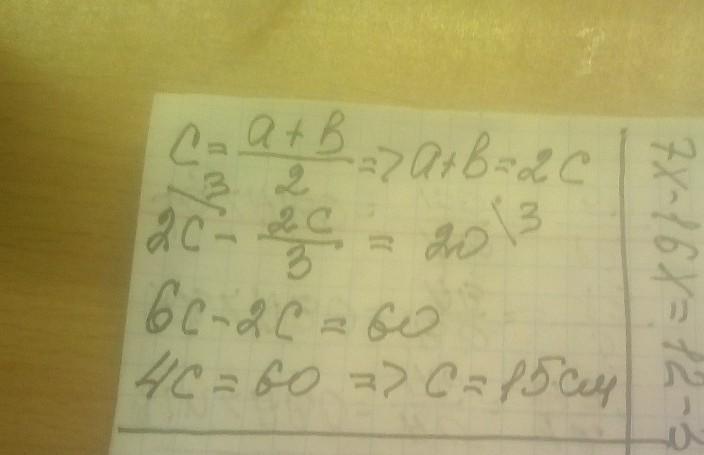 c = a + b / 2 => a + b = 2c
\3
2c - 2c / 3 = 20 \3
6c - 2c = 60
4c = 60 => c = 15 см
7x - 16x = 12 - 3